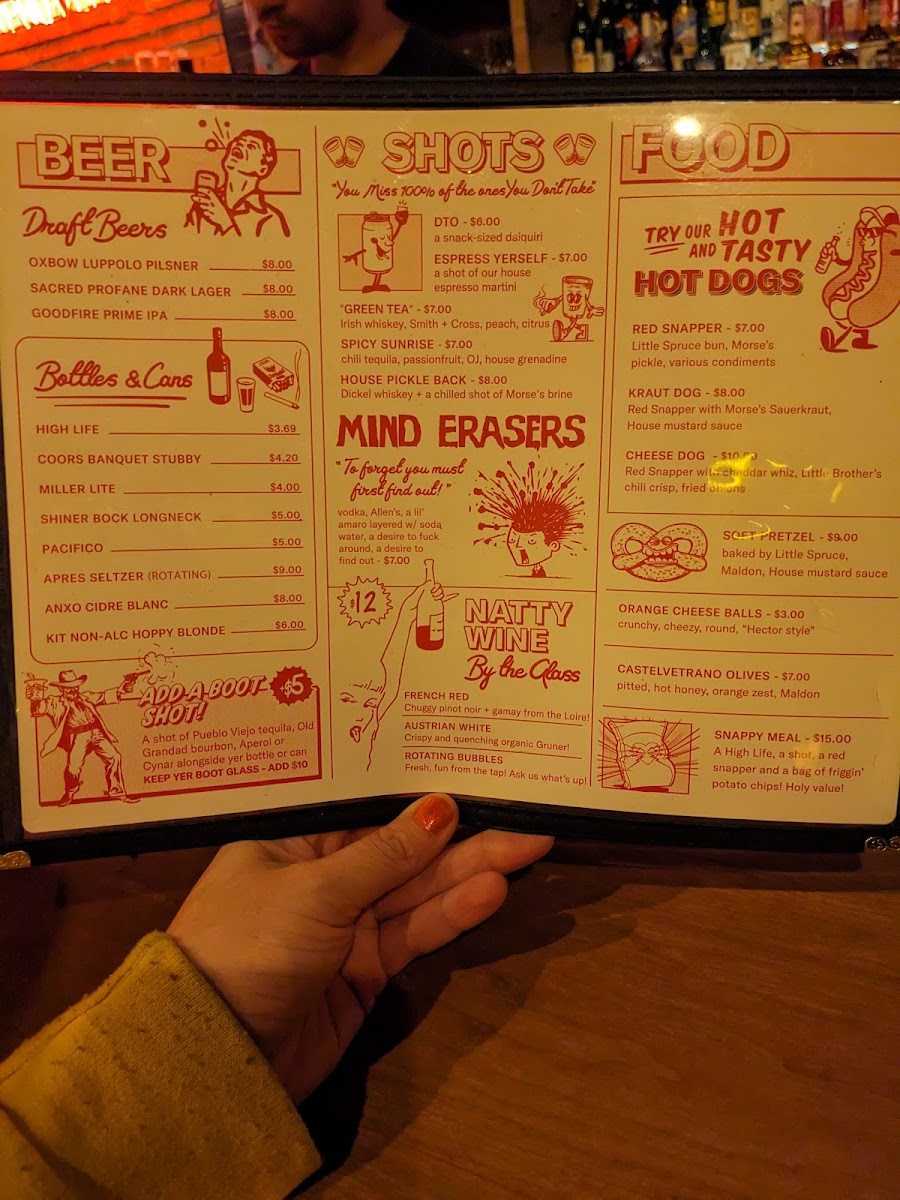 BEER
Draft Beers
OXBOW LUPPOLO PILSNER $8.00
SACRED PROFANE DARK LAGER $8.00
GOODFIRE PRIME IPA $8.00
Bottles & Cans
HIGH LIFE $3.69
COORS BANQUET STUBBY $4.20
MILLER LITE $4.00
SHINER BOCK LONGNECK $5.00
PACIFICO $5.00
APRES SELTZER (ROTATING) $9.00
ANXO CIDRE BLANC $8.00
KIT NON-ALC HOPPY BLONDE $6.00
ADD-A-BOOT
SHOT!
$5
A shot of Pueblo Viejo tequila, Old
Grandad bourbon, Aperol or
Cynar alongside yer bottle or can
KEEP YER BOOT GLASS - ADD $10
SHOTS
"You Miss 100% of the ones You Don't Take"
DTO - $6.00
a snack-sized daiquiri
ESPRESS YERSELF - $7.00
a shot of our house
espresso martini
"GREEN TEA" - $7.00
Irish whiskey, Smith + Cross, peach, citrus
SPICY SUNRISE - $7.00
chili tequila, passionfruit, OJ, house grenadine
HOUSE PICKLE BACK - $8.00
Dickel whiskey + a chilled shot of Morse's brine
MIND ERASERS
"To forget you must
first find out!"
vodka, Allen's, a lil'
amaro layered w/ soda
water, a desire to fuck
around, a desire to
find out - $7.00
$12
NATTY
WINE
By the Glass
FRENCH RED
Chuggy pinot noir + gamay from the Loire!
AUSTRIAN WHITE
Crispy and quenching organic Gruner!
ROTATING BUBBLES
Fresh, fun from the tap! Ask us what's up!
FOOD
TRY OUR HOT
AND TASTY
HOT DOGS
RED SNAPPER - $7.00
Little Spruce bun, Morse's
pickle, various condiments
KRAUT DOG - $8.00
Red Snapper with Morse's Sauerkraut,
House mustard sauce
CHEESE DOG - $10.00
Red Snapper with cheddar whiz, Little Brother's
chili crisp, fried onions
SOFT PRETZEL - $9.00
baked by Little Spruce,
Maldon, House mustard sauce
ORANGE CHEESE BALLS - $3.00
crunchy, cheezy, round, "Hector style"
CASTELVETRANO OLIVES - $7.00
pitted, hot honey, orange zest, Maldon
SNAPPY MEAL - $15.00
A High Life, a shot, a red
snapper and a bag of friggin'
potato chips! Holy value!